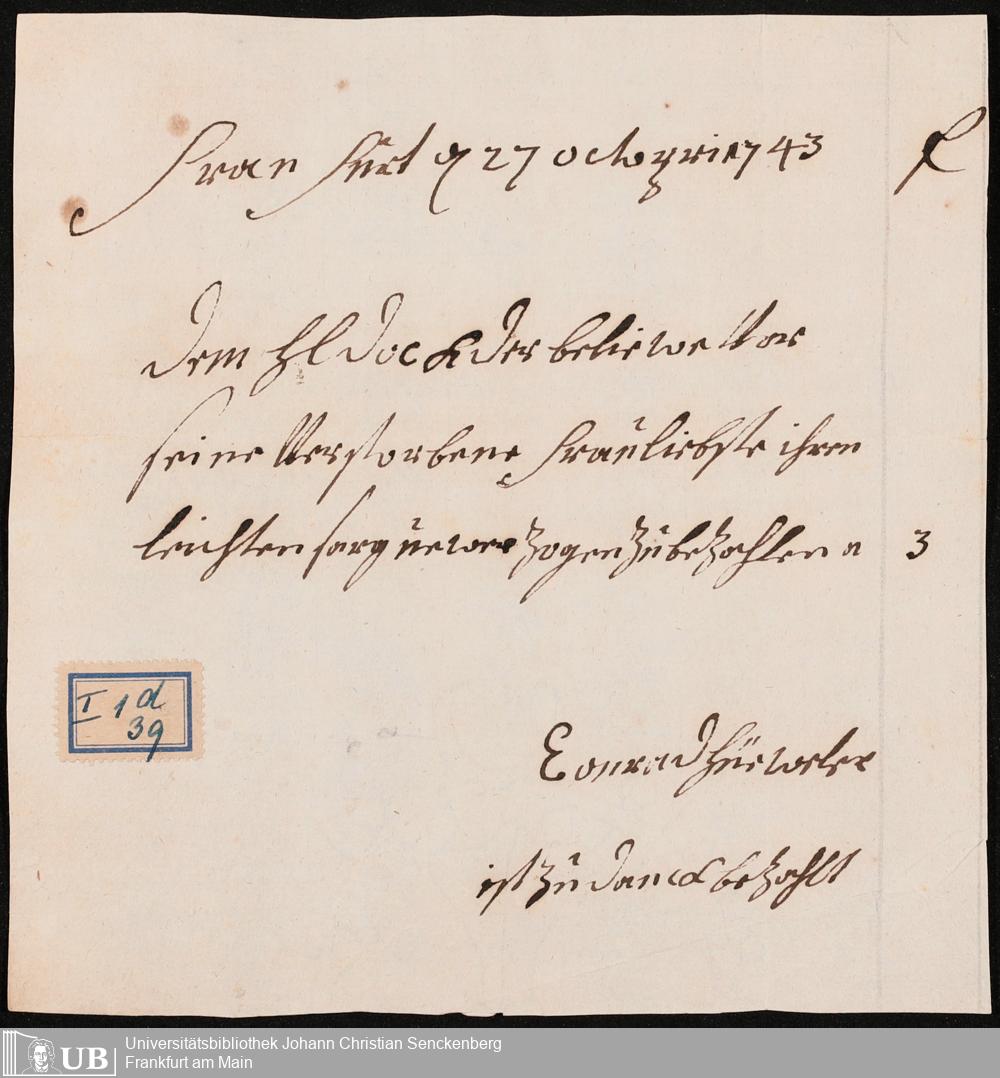 Fran fürt d 27 octobris 1743 f
dem Hl doc der beliewe vor
seine verstorbene frau liebste ihren
leichten sarg uewer zogen zu bezahlen a 3
I 1 d
39
Conrad Hüeweler
ist zu danck bezahlt
UB
Universitätsbibliothek Johann Christian Senckenberg
Frankfurt am Main